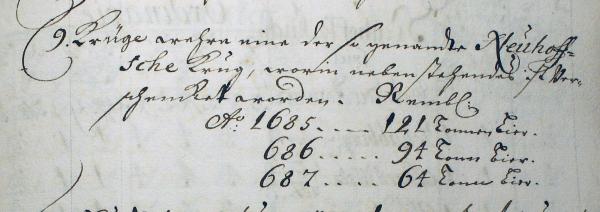 9. Krüge wehre eine der so genandte Neuhoff-
sche Krug, worin nebenstehendes ist Ver-
schencket worden. Nembl:
Aõ 1685..... 121 Tonnen bier.
686..... 94 Tonn bier.
687..... 64 Tonn bier.